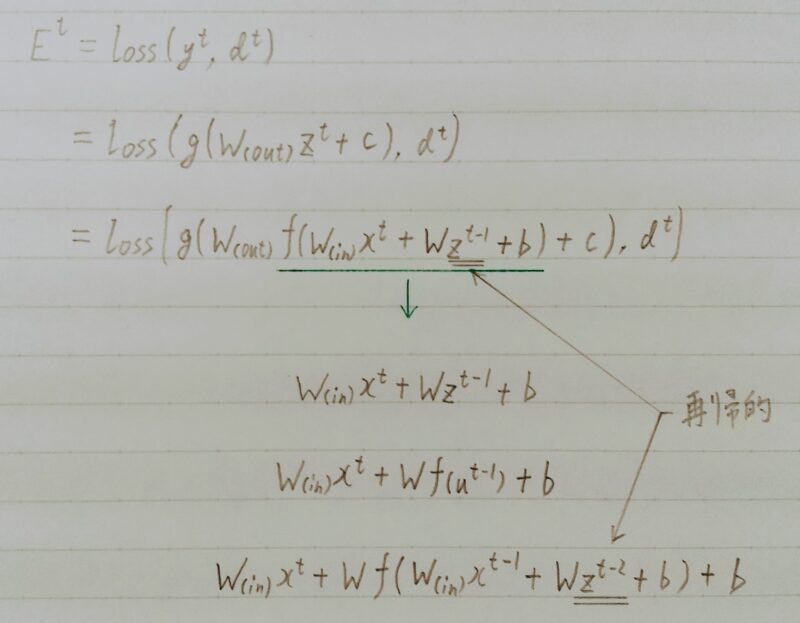 E^t = loss(y^t, d^t)
= loss(g(W(out) z^t + c), d^t)
= loss(g(W(out) f(W(in) x^t + W z^{t-1} + b) + c), d^t)
W(in) x^t + W z^{t-1} + b
再帰的
W(in) x^t + W f(u^{t-1}) + b
W(in) x^t + W f(W(in) x^{t-1} + W z^{t-2} + b) + b